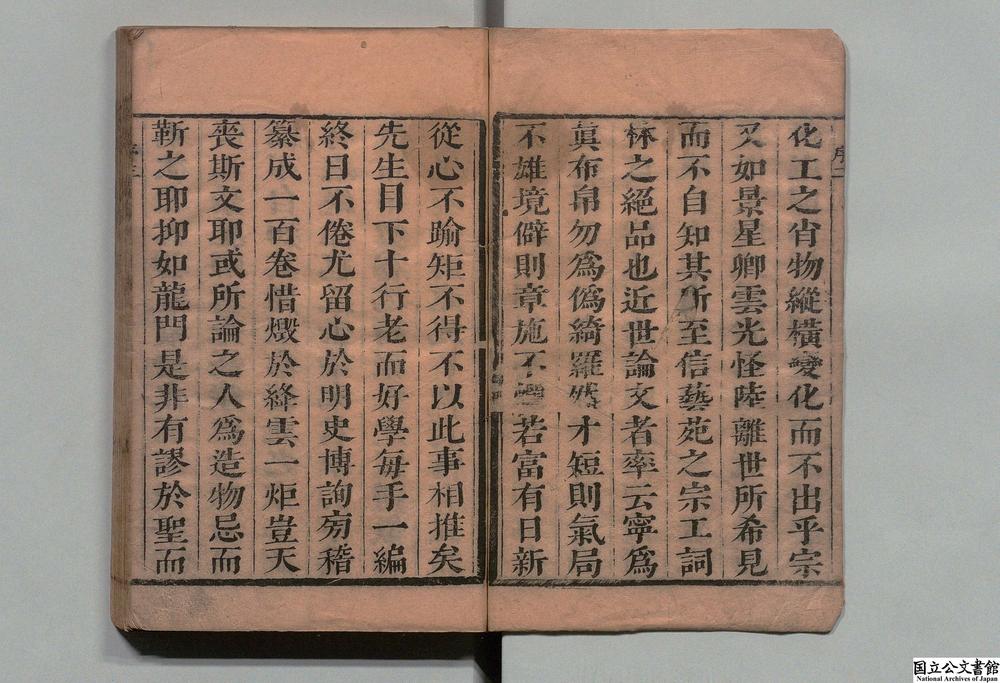 化工之肖物縱橫變化而不出乎宗
又如景星卿雲光怪陸離世所希見
而不自知其所至信藝苑之宗工詞
林之絕品也近世論文者率云寧爲
眞布帛勿爲僞綺羅然才短則氣局
不雄境僻則章施不 若富有日新
序二
從心不踰矩不得不以此事相推矣
先生目下十行老而好學每手一編
終日不倦尤留心於明史博詢旁稽
纂成一百卷惜燬於絳雲一炬豈天
喪斯文耶或所論之人爲造物忌而
靳之耶抑如龍門是非有謬於聖而
序三
国立公文書館
National Archives of Japan